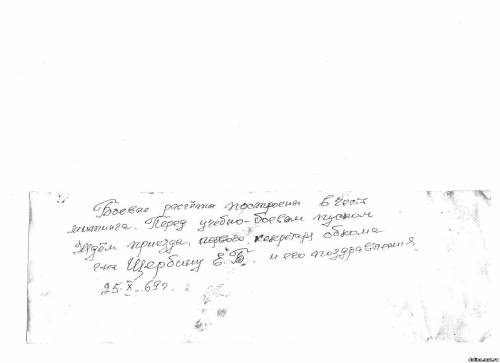 Боевые расчёты построены в честь
митинга. Перед учебно-боевым пуском
Ждём приезда первого секретаря обкома
Щербину Е.Б. и его поздравления
25.X.69г.